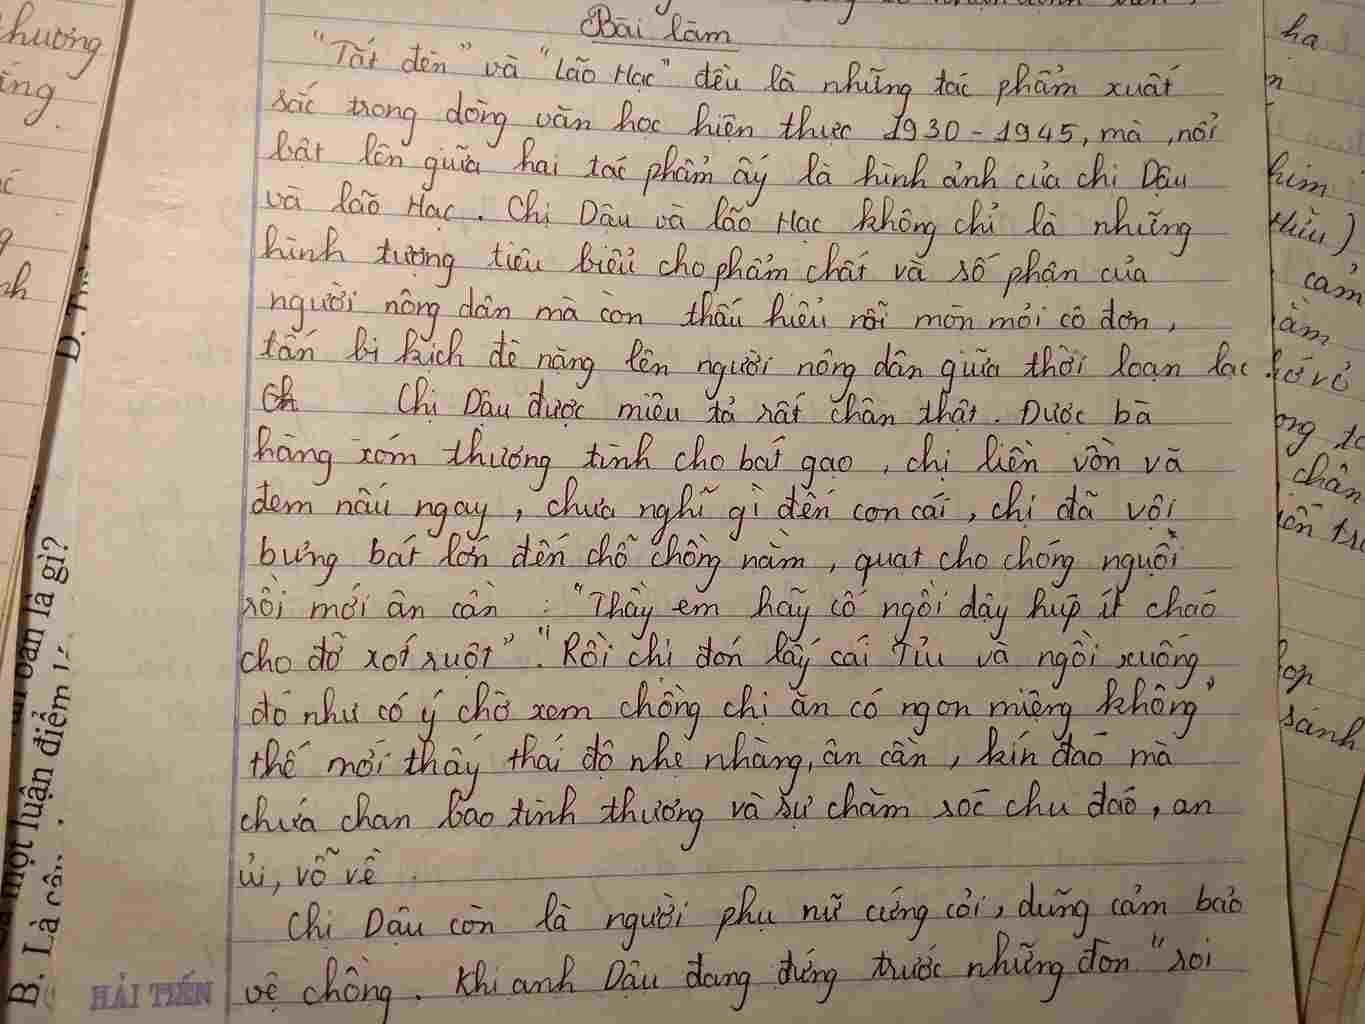 Bài làm
"Tắt đèn" và "Lão Hạc" đều là những tác phẩm xuất
sắc trong dòng văn học hiện thực 1930 - 1945, mà nổi
bật lên giữa hai tác phẩm ấy là hình ảnh của chị Dậu
và lão Hạc. Chị Dậu và lão Hạc không chỉ là những
hình tượng tiêu biểu cho phẩm chất và số phận của
người nông dân mà còn thấu hiểu nỗi mòn mỏi cô đơn,
tấn bi kịch đè nặng lên người nông dân giữa thời loạn lạc
Chị Dậu được miêu tả rất chân thật. Được bà
hàng xóm thương tình cho bát gạo, chị liền vồn vã
đem nấu ngay, chưa nghĩ gì đến con cái, chị đã vội
bưng bát lớn đến chỗ chồng nằm, quạt cho chóng nguội
rồi mới ân cần : "Thầy em hãy cố ngồi dậy húp ít cháo
cho đỡ xót ruột". "Rồi chị đón lấy cái Tỉu và ngồi xuống
đó như có ý chờ xem chồng chị ăn có ngon miệng không"
thế mới thấy thái độ nhẹ nhàng, ân cần, kín đáo mà
chứa chan bao tình thương và sự chăm sóc chu đáo, an
ủi, vỗ về
Chị Dậu còn là người phụ nữ cứng cỏi, dũng cảm bảo
vệ chồng. Khi anh Dậu đang đứng trước những đòn "roi
HẢI TIẾN
một luận điểm
B. Là
là gì?
hương
cảm
chân
sánh